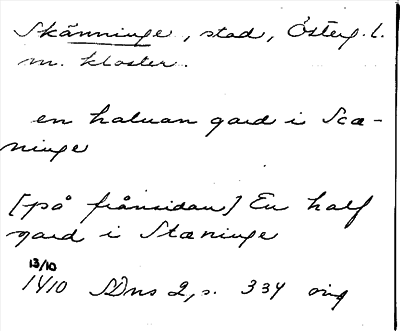 Skänninge, stad, Österg. l.
m. kloster.
en haluan gard i Scæ-
ninge
[på frånsidan] En half
gard i Skæninge
13/10
1410 SDns 2, s. 334 orig